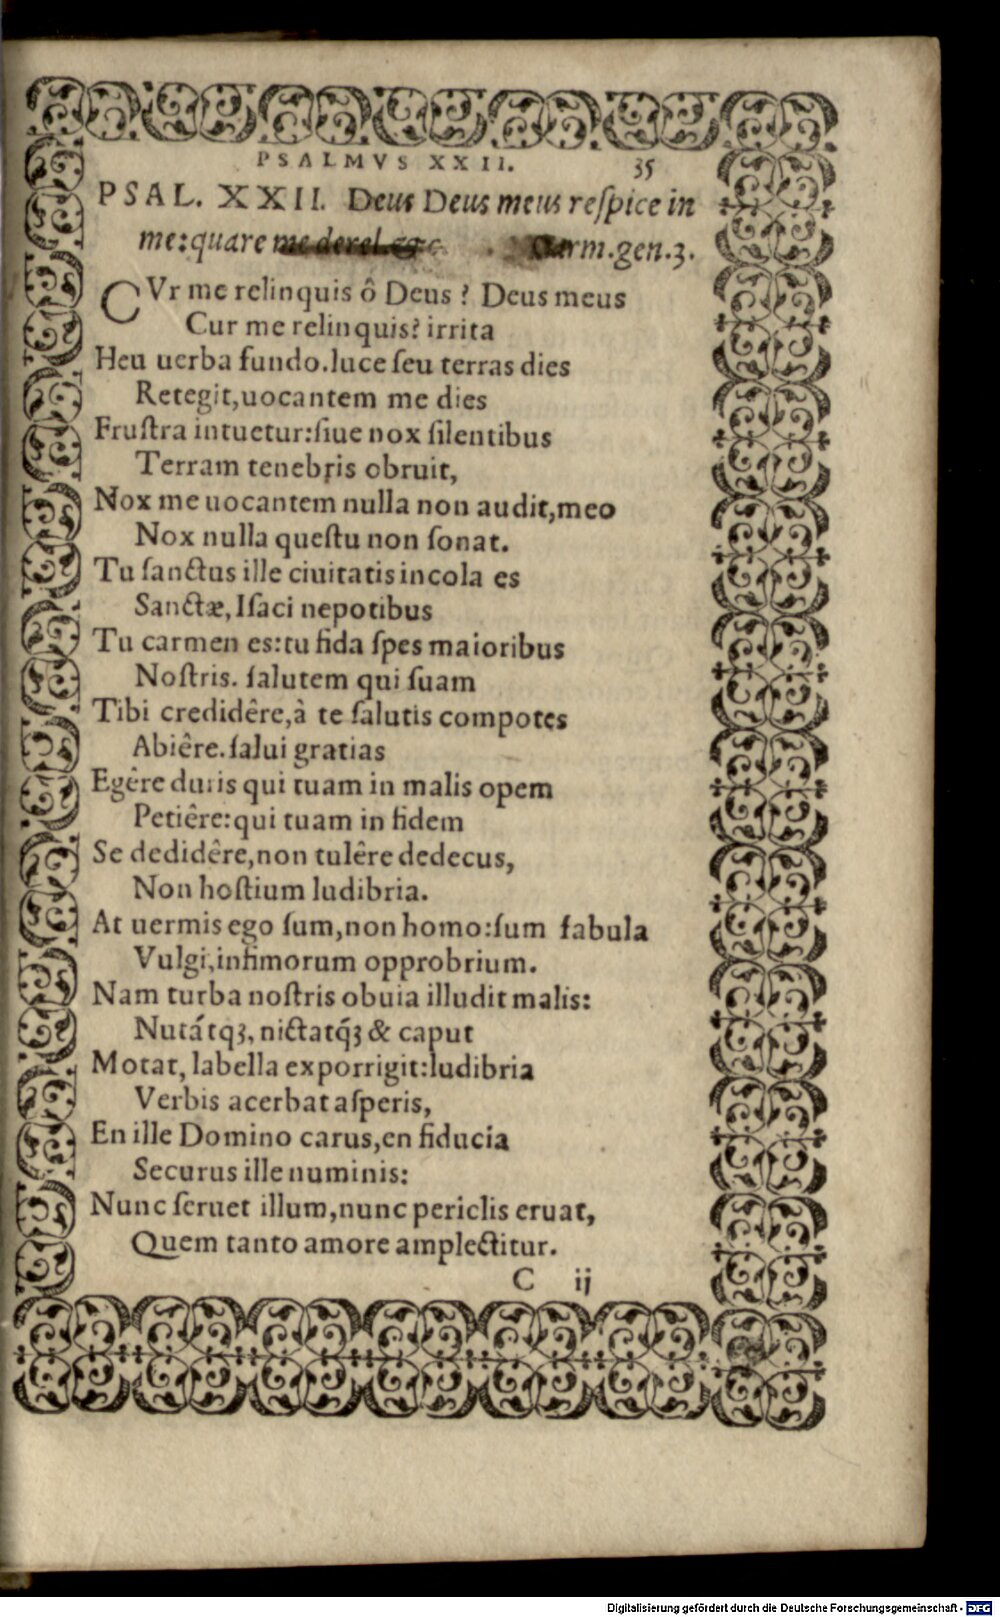 PSALMVS XXII. 35
PSAL. XXII. Deus Deus meus reſpice in
me: quare me derel. &c. Carm. gen. 3.
CVr me relinquis ô Deus? Deus meus
Cur me relinquis? irrita
Heu uerba fundo. luce ſeu terras dies
Retegit, uocantem me dies
Fruſtra intuetur: ſiue nox ſilentibus
Terram tenebris obruit,
Nox me uocantem nulla non audit, meo
Nox nulla queſtu non ſonat.
Tu ſanctus ille ciuitatis incola es
Sanctæ, Iſaci nepotibus
Tu carmen es: tu fida ſpes maioribus
Noſtris. ſalutem qui ſuam
Tibi credidêre, à te ſalutis compotes
Abiêre. ſalui gratias
Egêre duris qui tuam in malis opem
Petiêre: qui tuam in fidem
Se dedidêre, non tulêre dedecus,
Non hoſtium ludibria.
At uermis ego ſum, non homo: ſum fabula
Vulgi, infimorum opprobrium.
Nam turba noſtris obuia illudit malis:
Nutátqꝫ, nictatq́ꝫ & caput
Motat, labella exporrigit: ludibria
Verbis acerbat aſperis,
En ille Domino carus, en fiducia
Securus ille numinis:
Nunc ſeruet illum, nunc periclis eruat,
Quem tanto amore amplectitur.
C ij
Digitalisierung gefördert durch die Deutsche Forschungsgemeinschaft - DFG